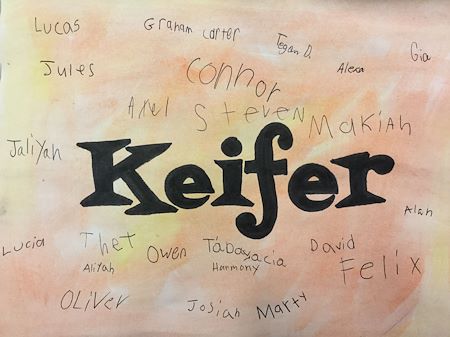 Lucas Graham Carter Tegan D. Gia
Jules Connor Alexa
Axel Steven Makiah
Jaliyah Keifer
Alan
Lucia Thet Owen TáDayacia David
Aliyah Harmony Felix
Oliver Josiah Marty